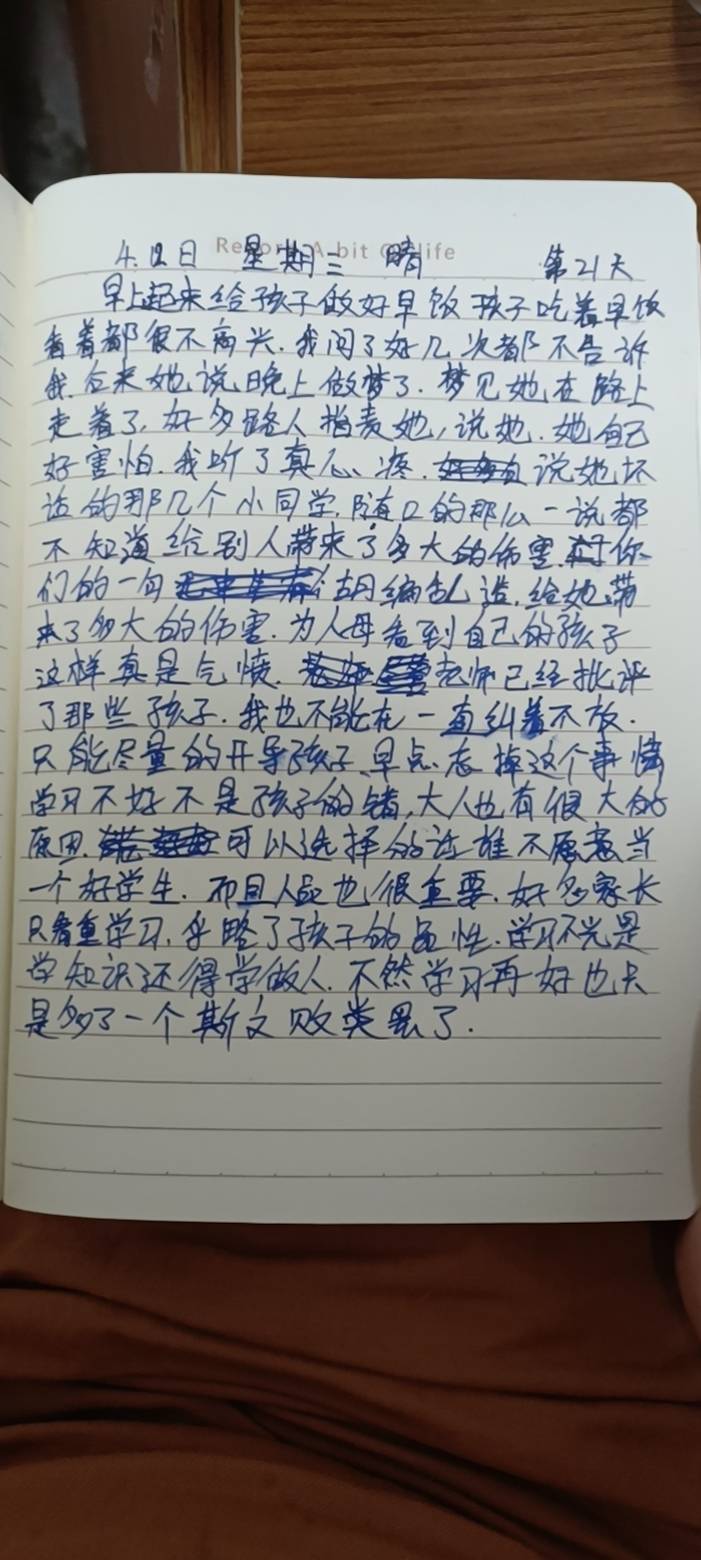 Record A bit Of life
4.12日 星期三 晴 第21天
早上起来给孩子做好早饭孩子吃着早饭
看着都很不高兴.我问了好几次都不告诉
我.后来她说晚上做梦了.梦见她在路上
走着了,好多路人指责她,说她.她自己
好害怕.我听了真心疼.说她坏
话的那几个小同学.随口的那么一说都
不知道给别人带来了多大的伤害.你
们的一句胡编乱造.给她带
来了多大的伤害.为人母看到自己的孩子
这样真是气愤.老师已经批评
了那些孩子.我也不能在一直纠着不放.
只能尽量的开导孩子.早点忘掉这个事情
学习不好不是孩子的错,大人也有很大的
原因.可以选择的话谁不愿意当
一个好学生.而且人品也很重要.好多家长
只看重学习.乎略了孩子的品性.学习不光是
学知识还得学做人.不然学习再好也只
是多了一个斯文败类罢了.